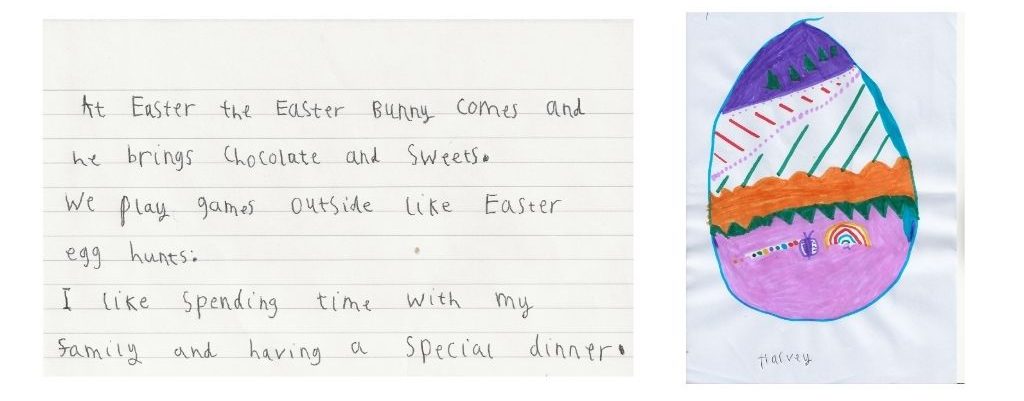 At Easter the Easter Bunny comes and
he brings Chocolate and Sweets.
We play games outside like Easter
egg hunts.
I like Spending time with my
family and having a Special dinner.
Harvey